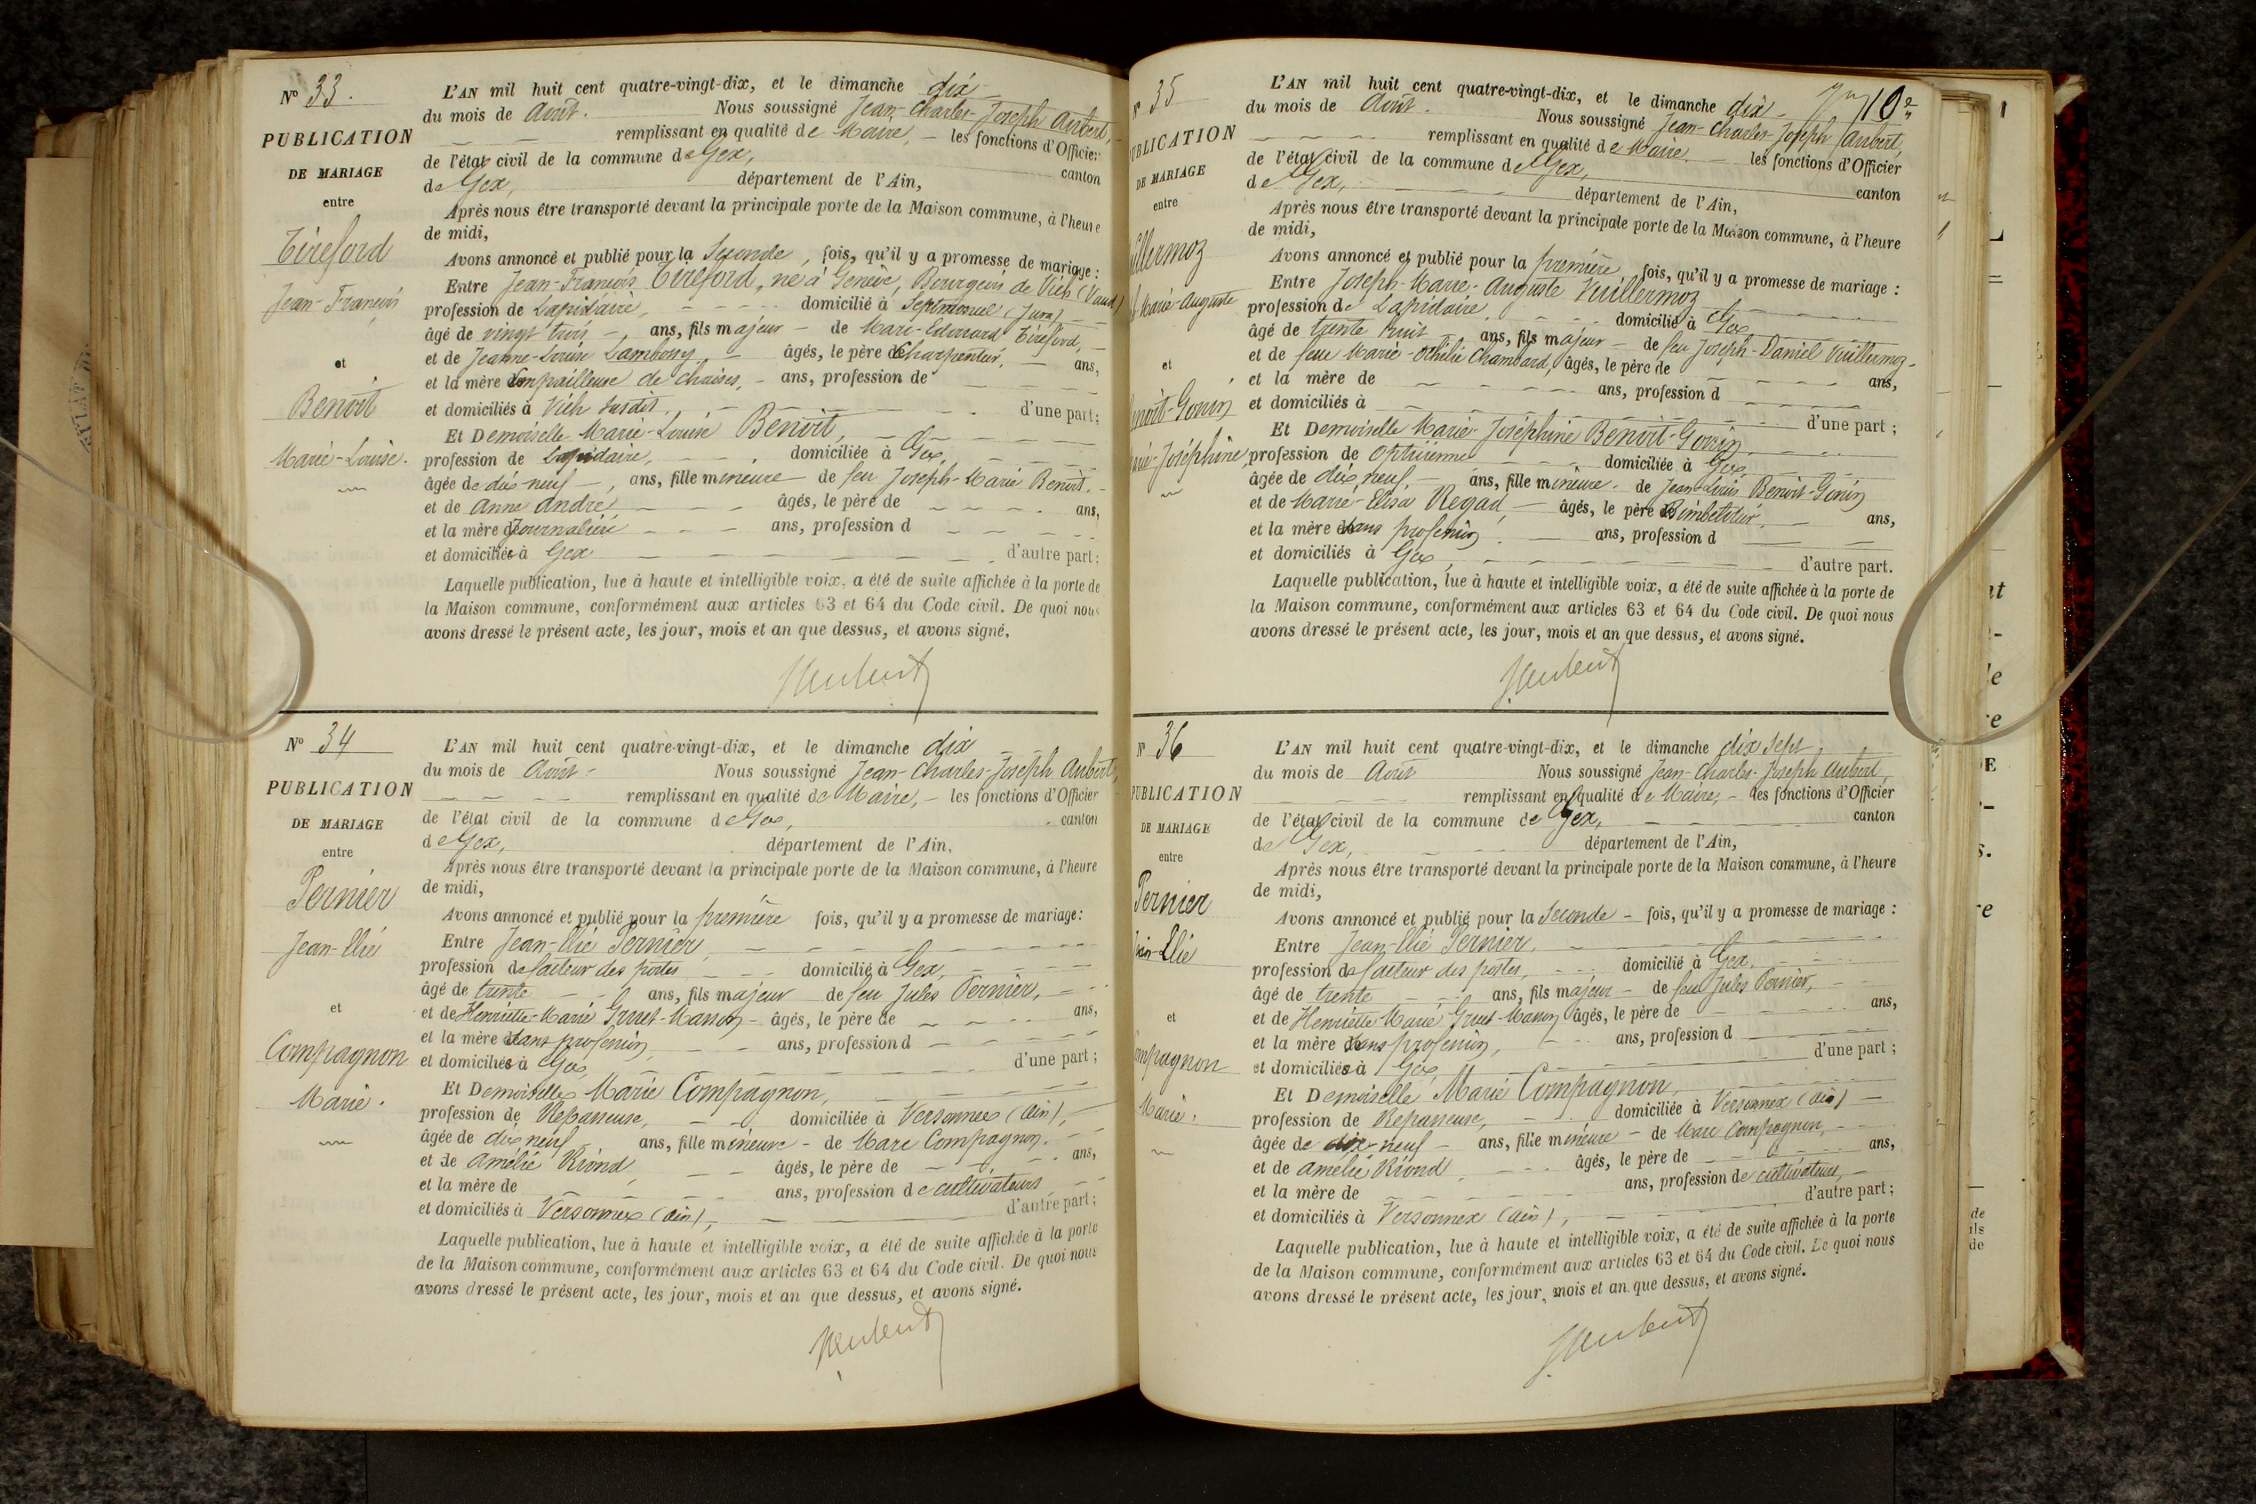 N° 33.
PUBLICATION
DE MARIAGE
entre
Tireford
Jean-François
et
Benoit
Marie-Louise.
L'AN mil huit cent quatre-vingt-dix, et le dimanche dix
du mois de Août. Nous soussigné Jean-Charles-Joseph Aubert,
remplissant en qualité de Maire, les fonctions d'Officier
de l'état civil de la commune de Gex, canton
de Gex, département de l'Ain,
Après nous être transporté devant la principale porte de la Maison commune, à l'heure
de midi,
Avons annoncé et publié pour la Seconde, fois, qu'il y a promesse de mariage :
Entre Jean-François Tireford, né à Genève, Bourgeois de Vich (Vaud)
profession de Lapidaire, domicilié à Septmoncel (Jura)
âgé de vingt trois, ans, fils majeur de Marc-Edouard Tireford,
et de Jeanne-Louise Lambossy âgés, le père Charpentier, ans,
et la mère Empailleuse de chaises, ans, profession de
et domiciliés à Vich susdit. d'une part;
Et Demoiselle Marie-Louise Benoit,
profession de Lapidaire, domiciliée à Gex,
âgée de dix neuf, ans, fille mineure de feu Joseph-Marie Benoit.
et de Anne André âgés, le père de ans,
et la mère Journalière ans, profession d
et domiciliés à Gex d'autre part;
Laquelle publication, lue à haute et intelligible voix, a été de suite affichée à la porte de
la Maison commune, conformément aux articles 63 et 64 du Code civil. De quoi nous
avons dressé le présent acte, les jour, mois et an que dessus, et avons signé.
JAubert
N° 34
PUBLICATION
DE MARIAGE
entre
Pernier
Jean-Elie
et
Compagnon
Marie.
L'AN mil huit cent quatre-vingt-dix, et le dimanche dix
du mois de Août. Nous soussigné Jean-Charles-Joseph Aubert,
remplissant en qualité de Maire, les fonctions d'Officier
de l'état civil de la commune de Gex, canton
de Gex, département de l'Ain,
Après nous être transporté devant la principale porte de la Maison commune, à l'heure
de midi,
Avons annoncé et publié pour la première fois, qu'il y a promesse de mariage:
Entre Jean-Elie Pernier,
profession de facteur des postes domicilié à Gex,
âgé de trente ans, fils majeur de feu Jules Pernier,
et de Henriette-Marie Gruet-Masson âgés, le père de ans,
et la mère sans profession, ans, profession d
et domiciliés à Gex, d'une part;
Et Demoiselle Marie Compagnon,
profession de Repasseuse, domiciliée à Versonnex (Ain),
âgée de dix neuf ans, fille mineure de Marc Compagnon.
et de Amélie Riond, âgés, le père de ans,
et la mère de ans, profession de cultivateurs
et domiciliés à Versonnex (Ain), d'autre part;
Laquelle publication, lue à haute et intelligible voix, a été de suite affichée à la porte
de la Maison commune, conformément aux articles 63 et 64 du Code civil. De quoi nous
avons dressé le présent acte, les jour, mois et an que dessus, et avons signé.
JAubert
N° 35
10e
PUBLICATION
DE MARIAGE
entre
illermoz
h-Marie-Auguste
et
enoit-Gonin
arie-Joséphine
L'AN mil huit cent quatre-vingt-dix, et le dimanche dix
du mois de Août. Nous soussigné Jean-Charles-Joseph Aubert,
remplissant en qualité de Maire. les fonctions d'Officier
de l'état civil de la commune de Gex, canton
de Gex, département de l'Ain,
Après nous être transporté devant la principale porte de la Maison commune, à l'heure
de midi,
Avons annoncé et publié pour la première fois, qu'il y a promesse de mariage :
Entre Joseph-Marie-Auguste Vuillermoz
profession de Lapidaire. domicilié à Gex
âgé de trente huit ans, fils majeur de feu Joseph-Daniel Vuillermoz
et de feue Marie-Othilie Chambard, âgés, le père de ans,
et la mère de ans, profession d
et domiciliés à d'une part;
Et Demoiselle Marie-Joséphine Benoit-Gonin
profession de opticienne domiciliée à Gex
âgée de dix neuf, ans, fille mineure. de Jean-Louis Benoit-Gonin
et de Marie-Elisa Regad, âgés, le père Bimbelotier. ans,
et la mère sans profession. ans, profession d
et domiciliés à Gex, d'autre part.
Laquelle publication, lue à haute et intelligible voix, a été de suite affichée à la porte de
la Maison commune, conformément aux articles 63 et 64 du Code civil. De quoi nous
avons dressé le présent acte, les jour, mois et an que dessus, et avons signé.
JAubert
N° 36
PUBLICATION
DE MARIAGE
entre
Pernier
Jean-Elie
et
ompagnon
Marie.
L'AN mil huit cent quatre-vingt-dix, et le dimanche dix sept,
du mois de Août Nous soussigné Jean-Charles-Joseph Aubert,
remplissant en qualité de Maire, les fonctions d'Officier
de l'état civil de la commune de Gex, canton
de Gex, département de l'Ain,
Après nous être transporté devant la principale porte de la Maison commune, à l'heure
de midi,
Avons annoncé et publié pour la Seconde fois, qu'il y a promesse de mariage :
Entre Jean-Elie Pernier,
profession de facteur des postes, domicilié à Gex.
âgé de trente ans, fils majeur de feu Jules Pernier,
et de Henriette Marie Gruet-Masson âgés, le père de ans,
et la mère sans profession, ans, profession d
et domiciliés à Gex, d'une part;
Et Demoiselle Marie Compagnon,
profession de Repasseuse, domiciliée à Versonnex (Ain)
âgée de dix-neuf ans, fille mineure de Marc Compagnon,
et de Amélie Riond, âgés, le père de ans,
et la mère de ans, profession de cultivateurs,
et domiciliés à Versonnex (Ain), d'autre part;
Laquelle publication, lue à haute et intelligible voix, a été de suite affichée à la porte
de la Maison commune, conformément aux articles 63 et 64 du Code civil. De quoi nous
avons dressé le présent acte, les jour, mois et an que dessus, et avons signé.
JAubert